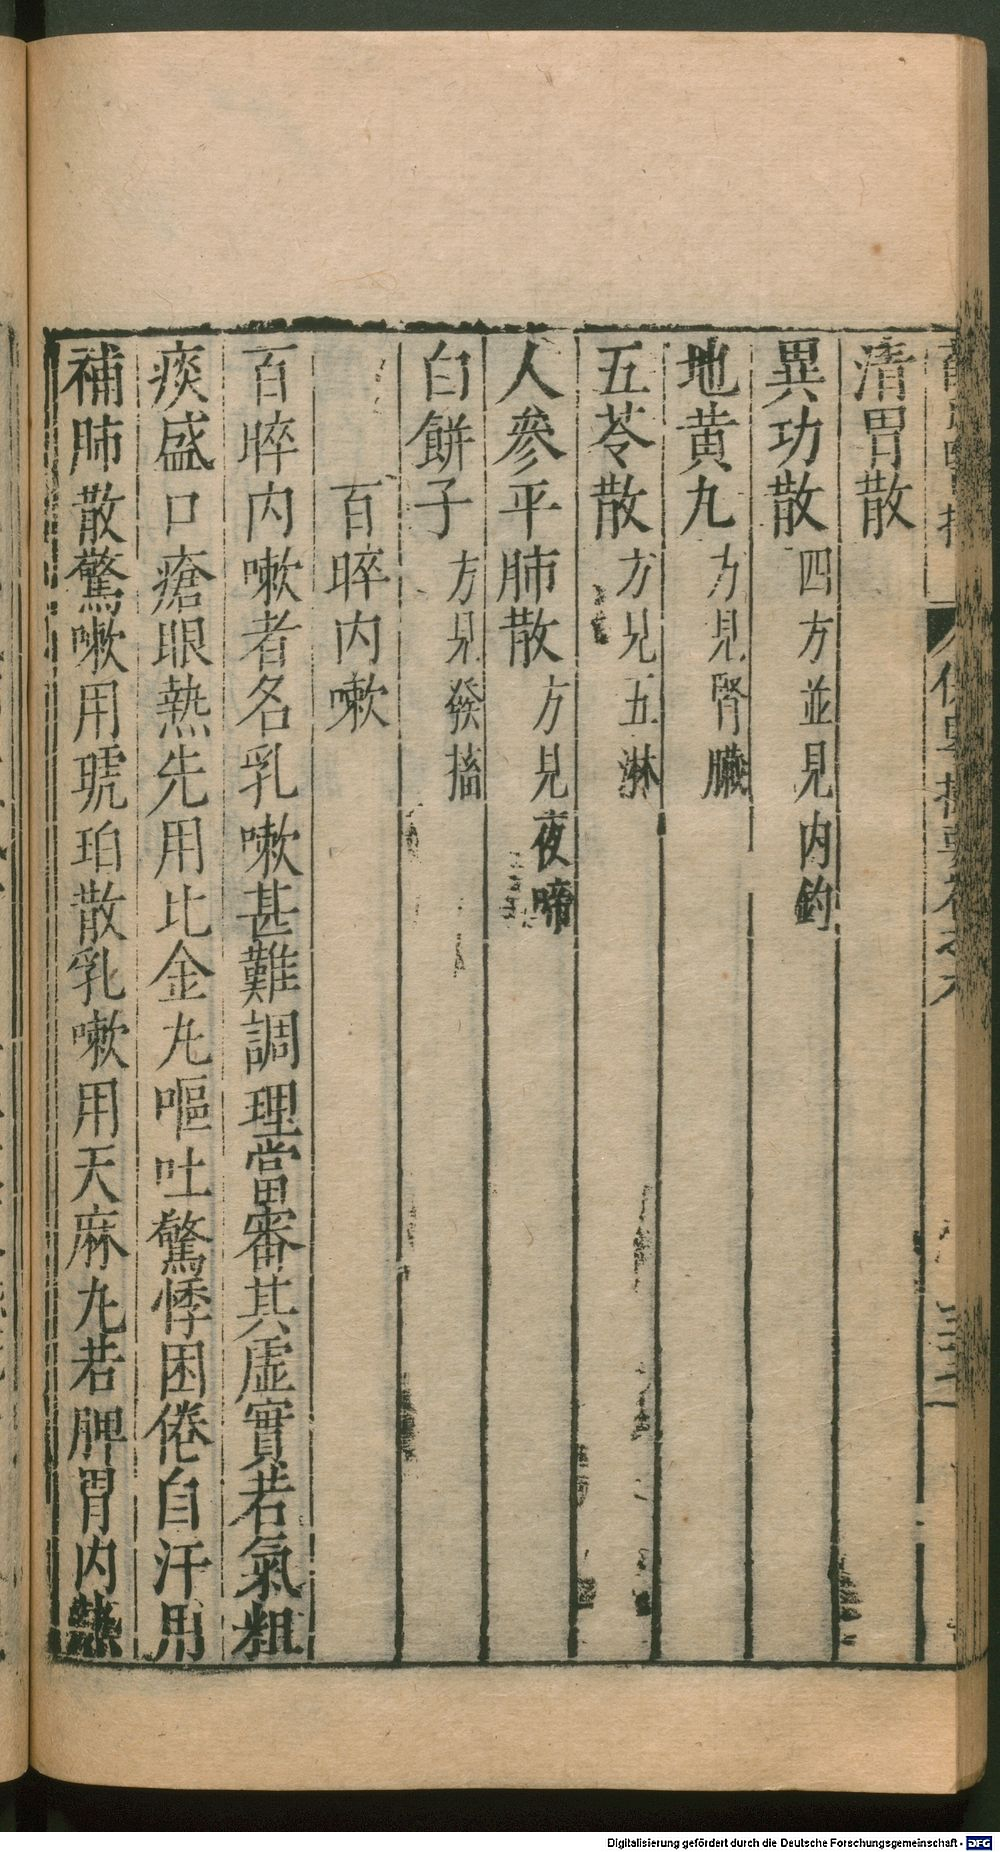 清胃散
異功散 四方並見内釣
地黄九 方見腎臟
五苓散 方見五淋
人參平肺散 方見夜啼
白餅子 方見發搐
百晬内嗽
百晬内嗽者名乳嗽甚難調理當審其虚實若氣粗
痰盛口瘡眼熱先用比金九嘔吐驚悸困倦自汗用
補肺散驚嗽用琥珀散乳嗽用天麻九若脾胃内熱
Digitalisierung gefördert durch die Deutsche Forschungsgemeinschaft - DFG